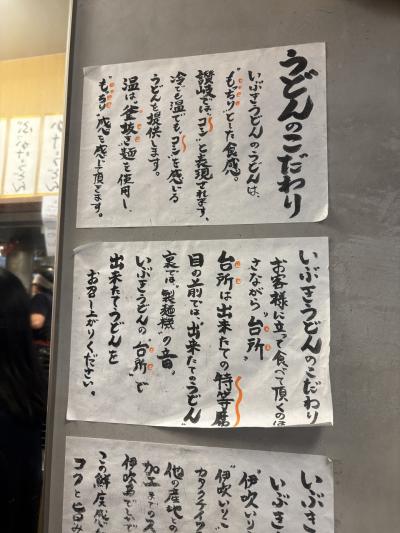 うどんのこだわり
いぶきうどんのうどんは、
"もっちり"とした食感。
讃岐では"コシ"と表現されます。
冷でも温でも"コシ"を感いる
うどんを提供します。
温は"釜抜き"麺を使用し、
"もっちり"感を感じ頂きます。
いぶきうどんのこだわり
お客様に立って食べて頂くのは
さながら"台所"
台所は出来たての特等席
目の前では、出来たてのうどん
裏では"製麺機"の音。
いぶきうどんの"台所"で
出来たてうどんを
お召し上がりください。
いぶき
いぶき
"伊吹いり
"伊吹いりこ"
カタクチイワ
他の産地との
加工までのス
伊吹島でしかで
この鮮度感が
コクと旨み